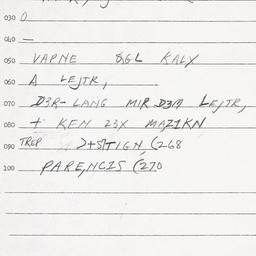 030 0
040 —
050 VAPNE &GL KALX
060 A LEJTR,
070 D3R-LANG MIR D3M LEJTR,
080 + KEN 23X MAZIKN
090 TREP )+STIGN (268
100 PARE,NCIS (270